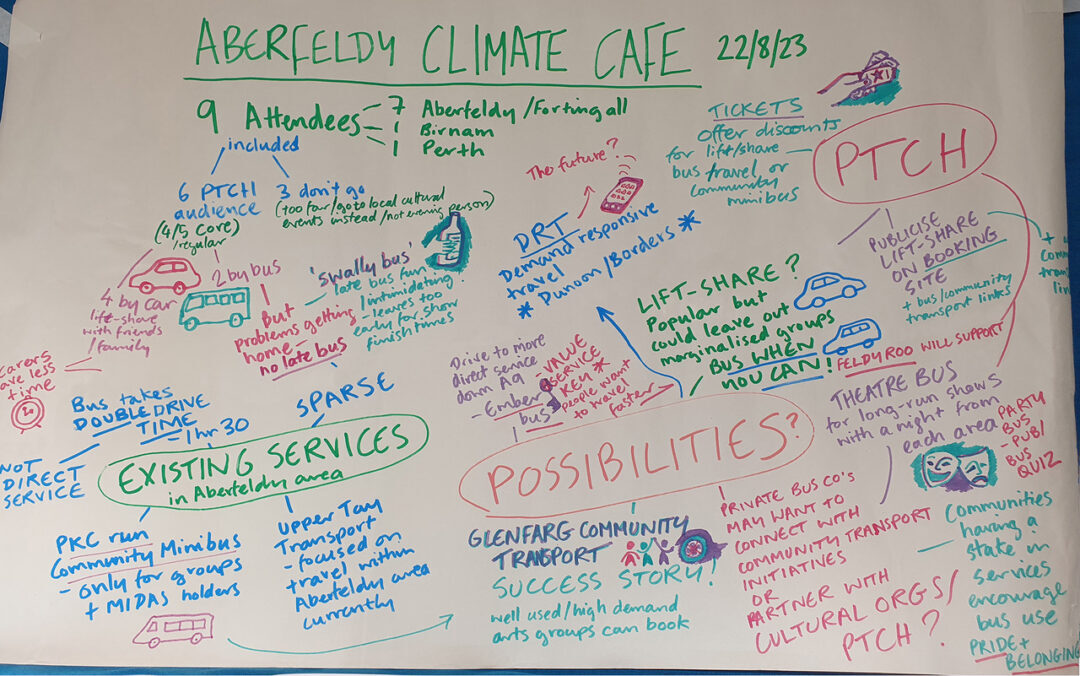 ABERFELDY CLIMATE CAFE 22/8/23
9 Attendees
7 Aberfeldy/Fortingall
1 Birnam
1 Perth
included
6 PTCH
audience
(4/5 core)
/regular
3 don't go
(too far/go to local cultural
events instead/not evening person)
4 by car
lift-share
with friends
/family
carers
ave less
time
2 by bus
But
problems getting
home-
no late bus
'Swally bus'
late bus fun
/intimidating
- leaves too
early for show
finish times
EXISTING SERVICES
in Aberfeldy area
SPARSE
Bus takes
DOUBLE DRIVE
TIME
- 1hr 30
NOT
DIRECT
SERVICE
PKC run
Community Minibus
- only for groups
+ MIDAS holders
Upper Tay
Transport
- focused on
travel within
Aberfeldy area
currently
POSSIBILITIES?
The future?
DRT
Demand responsive
travel *
* Dunoon/Borders
Drive to more
direct service
down A9
- Ember
bus
- VALUE
SERVICE
KEY *
people want
to travel
faster
LIFT-SHARE?
Popular but
could leave out
marginalised groups
BUS WHEN
YOU CAN!
GLENFARG COMMUNITY
TRANSPORT
SUCCESS STORY!
well used/high demand
arts groups can book
PRIVATE BUS CO'S
MAY WANT TO
CONNECT WITH
COMMUNITY TRANSPORT
INITIATIVES
OR
PARTNER WITH
CULTURAL ORGS/
PTCH?
PTCH
TICKETS
offer discounts
for lift/share
bus travel or
community
minibus
PUBLICISE
LIFT-SHARE
ON BOOKING
SITE
+ bus/community
transport links
FELDY ROO WILL SUPPORT
THEATRE BUS
for long-run shows
with a night from
each area
PARTY
BUS
- PUB/
BUS
QUIZ
Communities
having a
stake in
services
encourage
bus use
PRIDE +
BELONGING